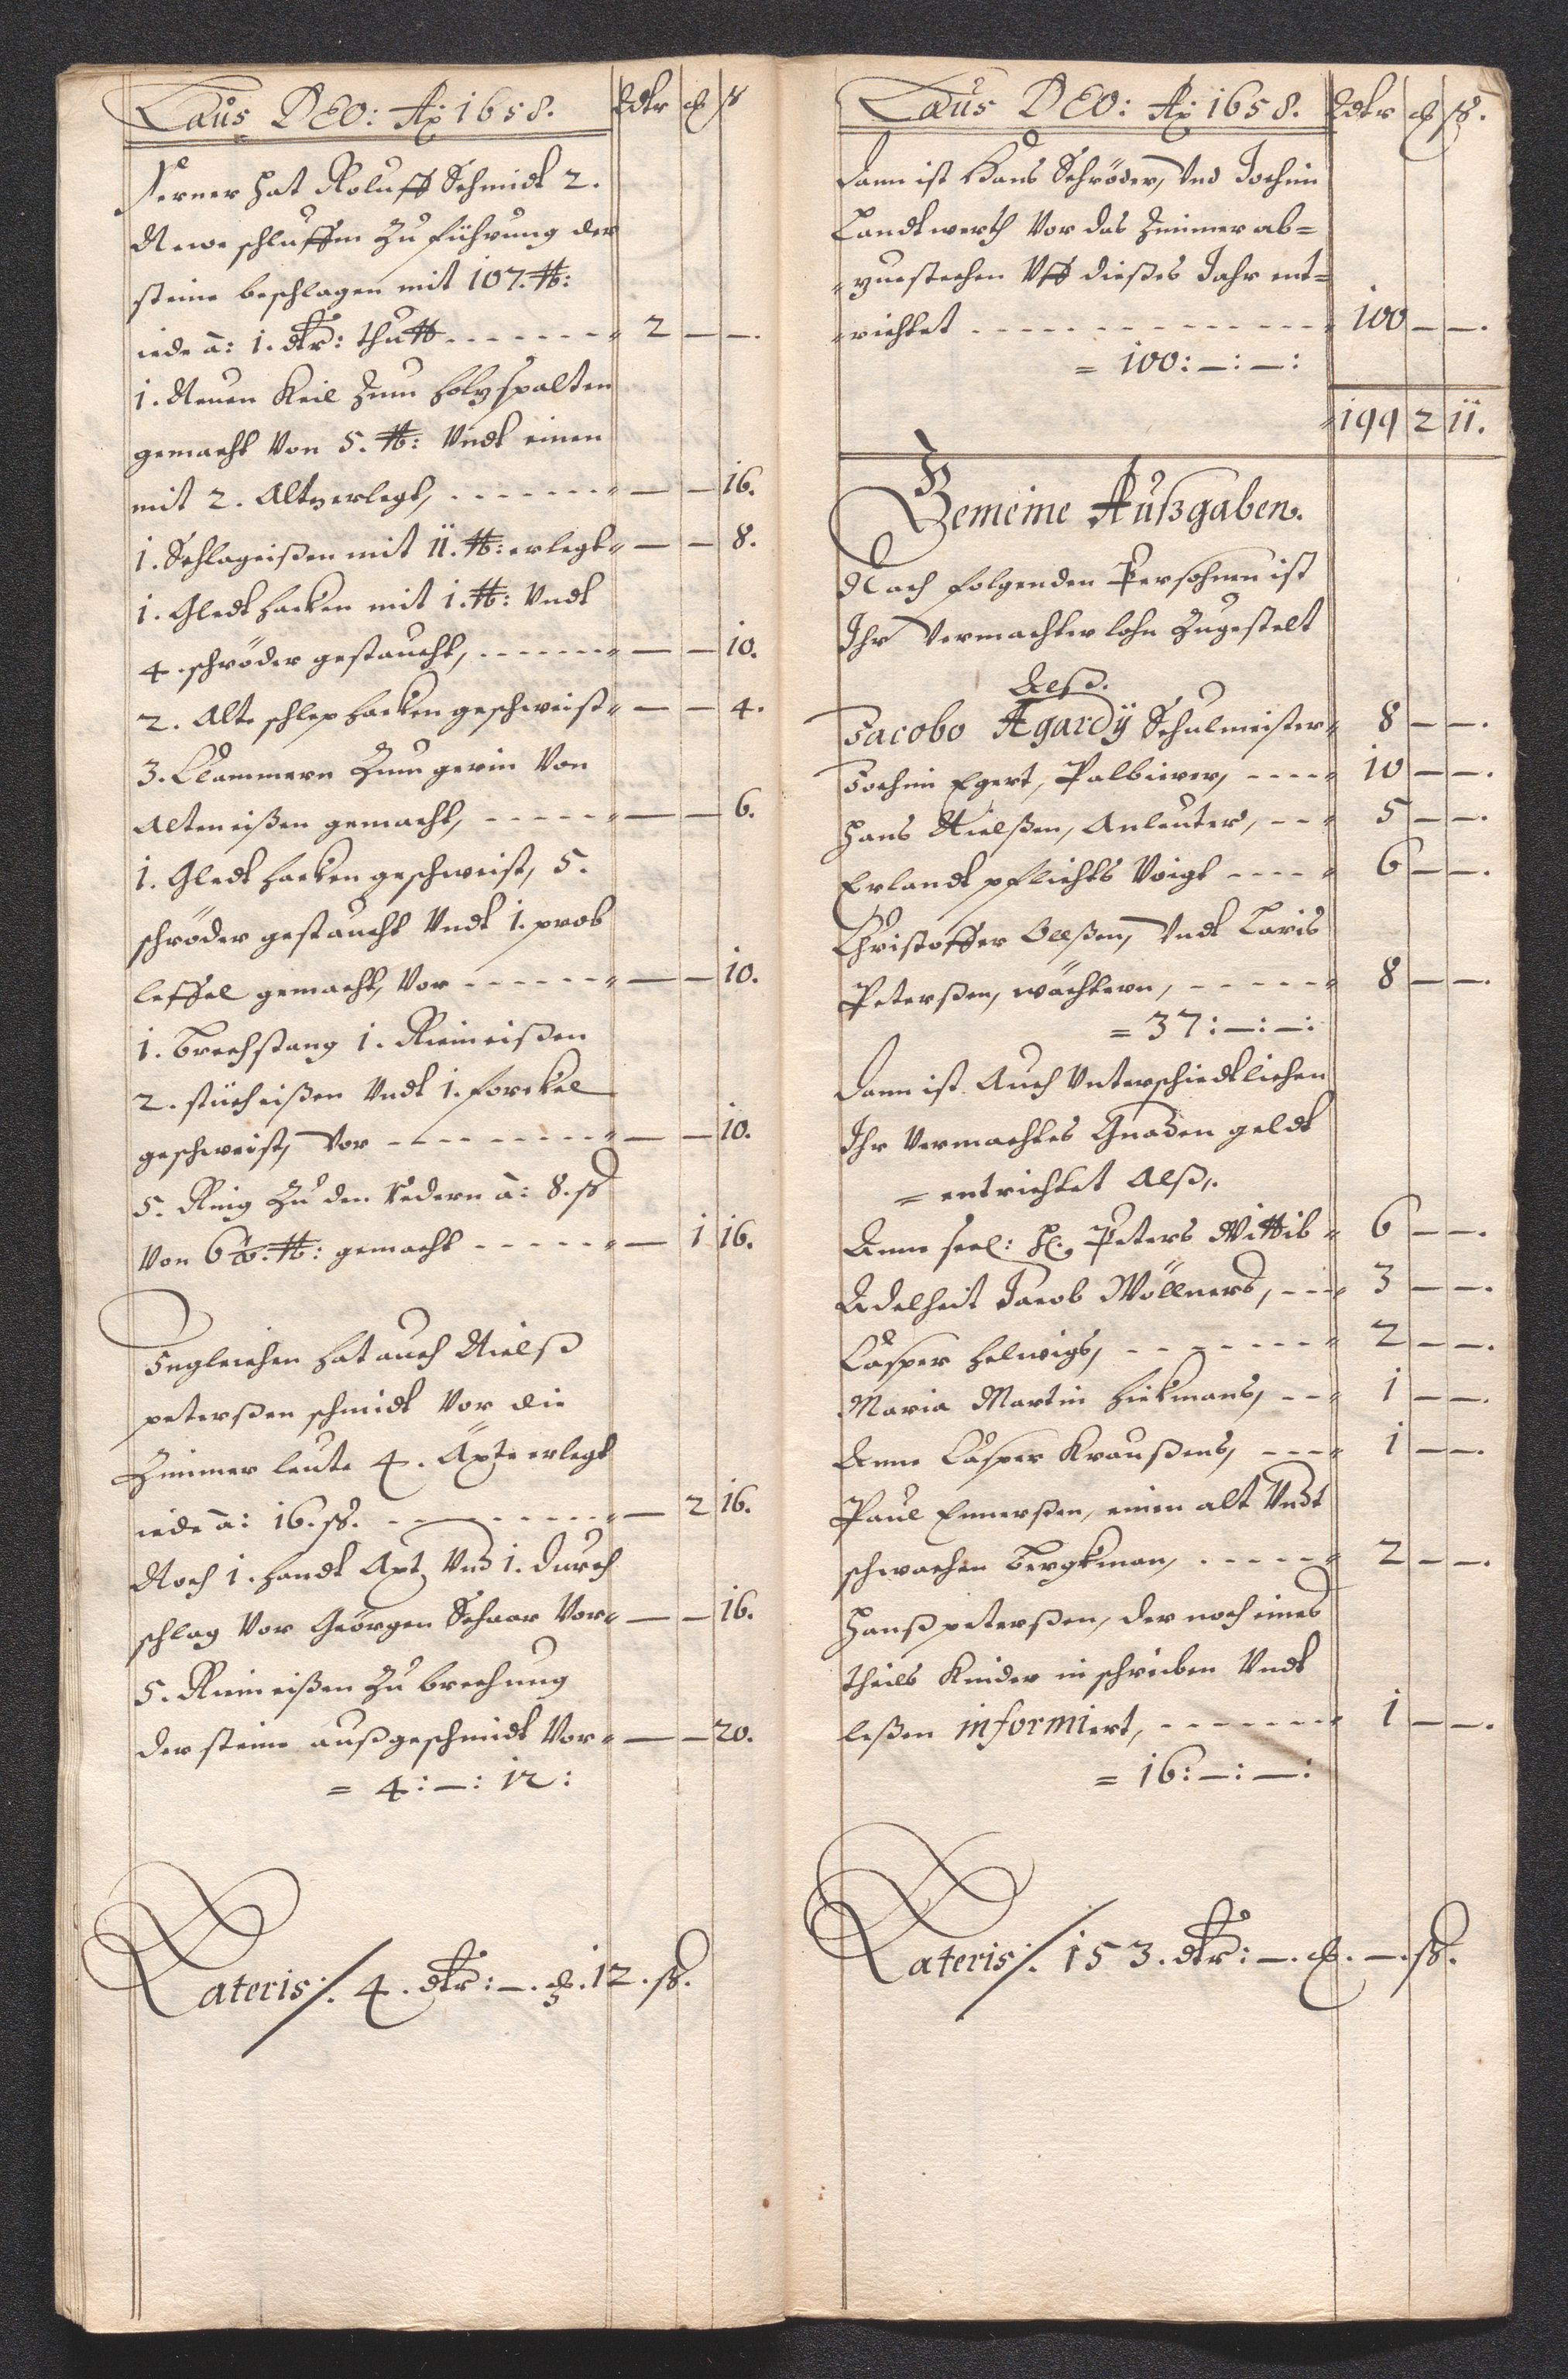 Laus DEO: Aō: 1658. Rdtr ₰ ß
Ferner hat Roluff Schmidt 2.
Newe schluffen Zu führung der
steine beschlagen mit 107. ℔:
iede â: 1. dtr: thutt - - - - - - - 2 — —.
1. Neuen Keil Zum holzspalten
gemacht Von 5. ℔: Vndt einen
mit 2. Alt verlegt, - - - - - - - — — 16.
1. Schlageißen mit 11. ℔: erlegt — — 8.
1. Gledt hacken mit 1. ℔: Vndt
4. schröder gestaucht, - - - - - - - — — 10.
2. Alte schlep hacken geschweist — — 4.
3. Clammern Zum gerin Von
Alten eißen gemacht, - - - - - — — 6.
1. Gledt hacken geschweist, 5.
schröder gestaucht Vndt 1. prob
leffel gemacht, Vor - - - - - - — — 10.
1. Brechstang 1. Rinneißen
2. stücheißen Vndt 1. forckel
geschweist, Vor - - - - - - - - - — — 10.
5. Ring Zu den Redern à: 8. ß
Von 6 ½. ℔: gemacht - - - - - - — 1 16.
Ingleichen hat auch Nielß
peterßen schmidt Vor die
Zimmer leute 4. Äxte erlegt
iede â: 16. ß. - - - - - - - - - — 2 16.
Noch 1. handt Axt, Vnd 1. Durch
schlag Vor Geörgen Schaar Vor — — 16.
5. Rinneißen Zu brechung
der steine außgeschmidt Vor — — 20.
= 4: —: 12:
Lateris/. 4. dtr: —. ₰. 12. ß.
Laus DEO: Aō: 1658. Rdtr ₰ ß.
Dann ist Hans Schröder, Vnd Jochim
Landtwerth Vor das Zimmer ab=
zuestechen Vff dießes Jahr ent=
richtet - - - - - - - - - - - - - - 100 — —.
= 100: —: —:
199 2 11.
Gemeine Außgaben.
Nach folgenden Persohnen ist
Ihr Vermachter lohn Zugestelt
Alß.
Jacobo Agardÿ Schulmeister 8 — —.
Jochim Egert, Palbierer, - - - - 10 — —.
Hans Nielßen, Anleuter, - - - 5 — —.
Erlandt pflichts Voigt - - - - 6 — —.
Christoffer Olßen, Vndt Laris
Peterßen, wächtern, - - - - - 8 — —.
= 37: —: —:
Dann ist Auch Vnterschiedtlichen
Ihr Vermachtes Gnaden geldt
= entrichtet Alß,.
Anne seel: H. Peters Wittib 6 — —.
Adelheit Jacob Wöllners, - - - 3 — —.
Casper Helwigs, - - - - - - - 2 — —.
Maria Martin Hickmans, - - - 1 — —.
Anne Casper Kraußens, - - - - 1 — —.
Paul Emmerßen, einen alt Vndt
schwachen Bergkman, - - - - - 2 — —.
Hanß peterßen, der noch eines
theils Kinder in schreiben Vndt
leßen informiert, - - - - - - - 1 — —.
= 16: —: —:
Lateris/. 153. dtr: —. ₰. —. ß.